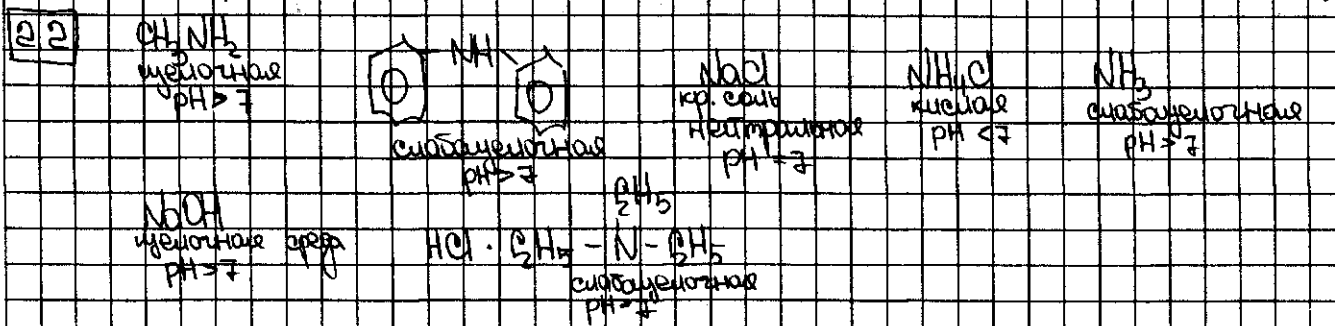 22
CH3NH2
щелочная
pH > 7
NH
слабощелочная
pH > 7
NaCl
кр. соль
нейтральная
pH = 7
NH4Cl
кислая
pH < 7
NH3
слабощелочная
pH > 7
NaOH
щелочная среда
pH > 7
C2H5
HCl · C2H5 - N - C2H5
слабощелочная
pH 7